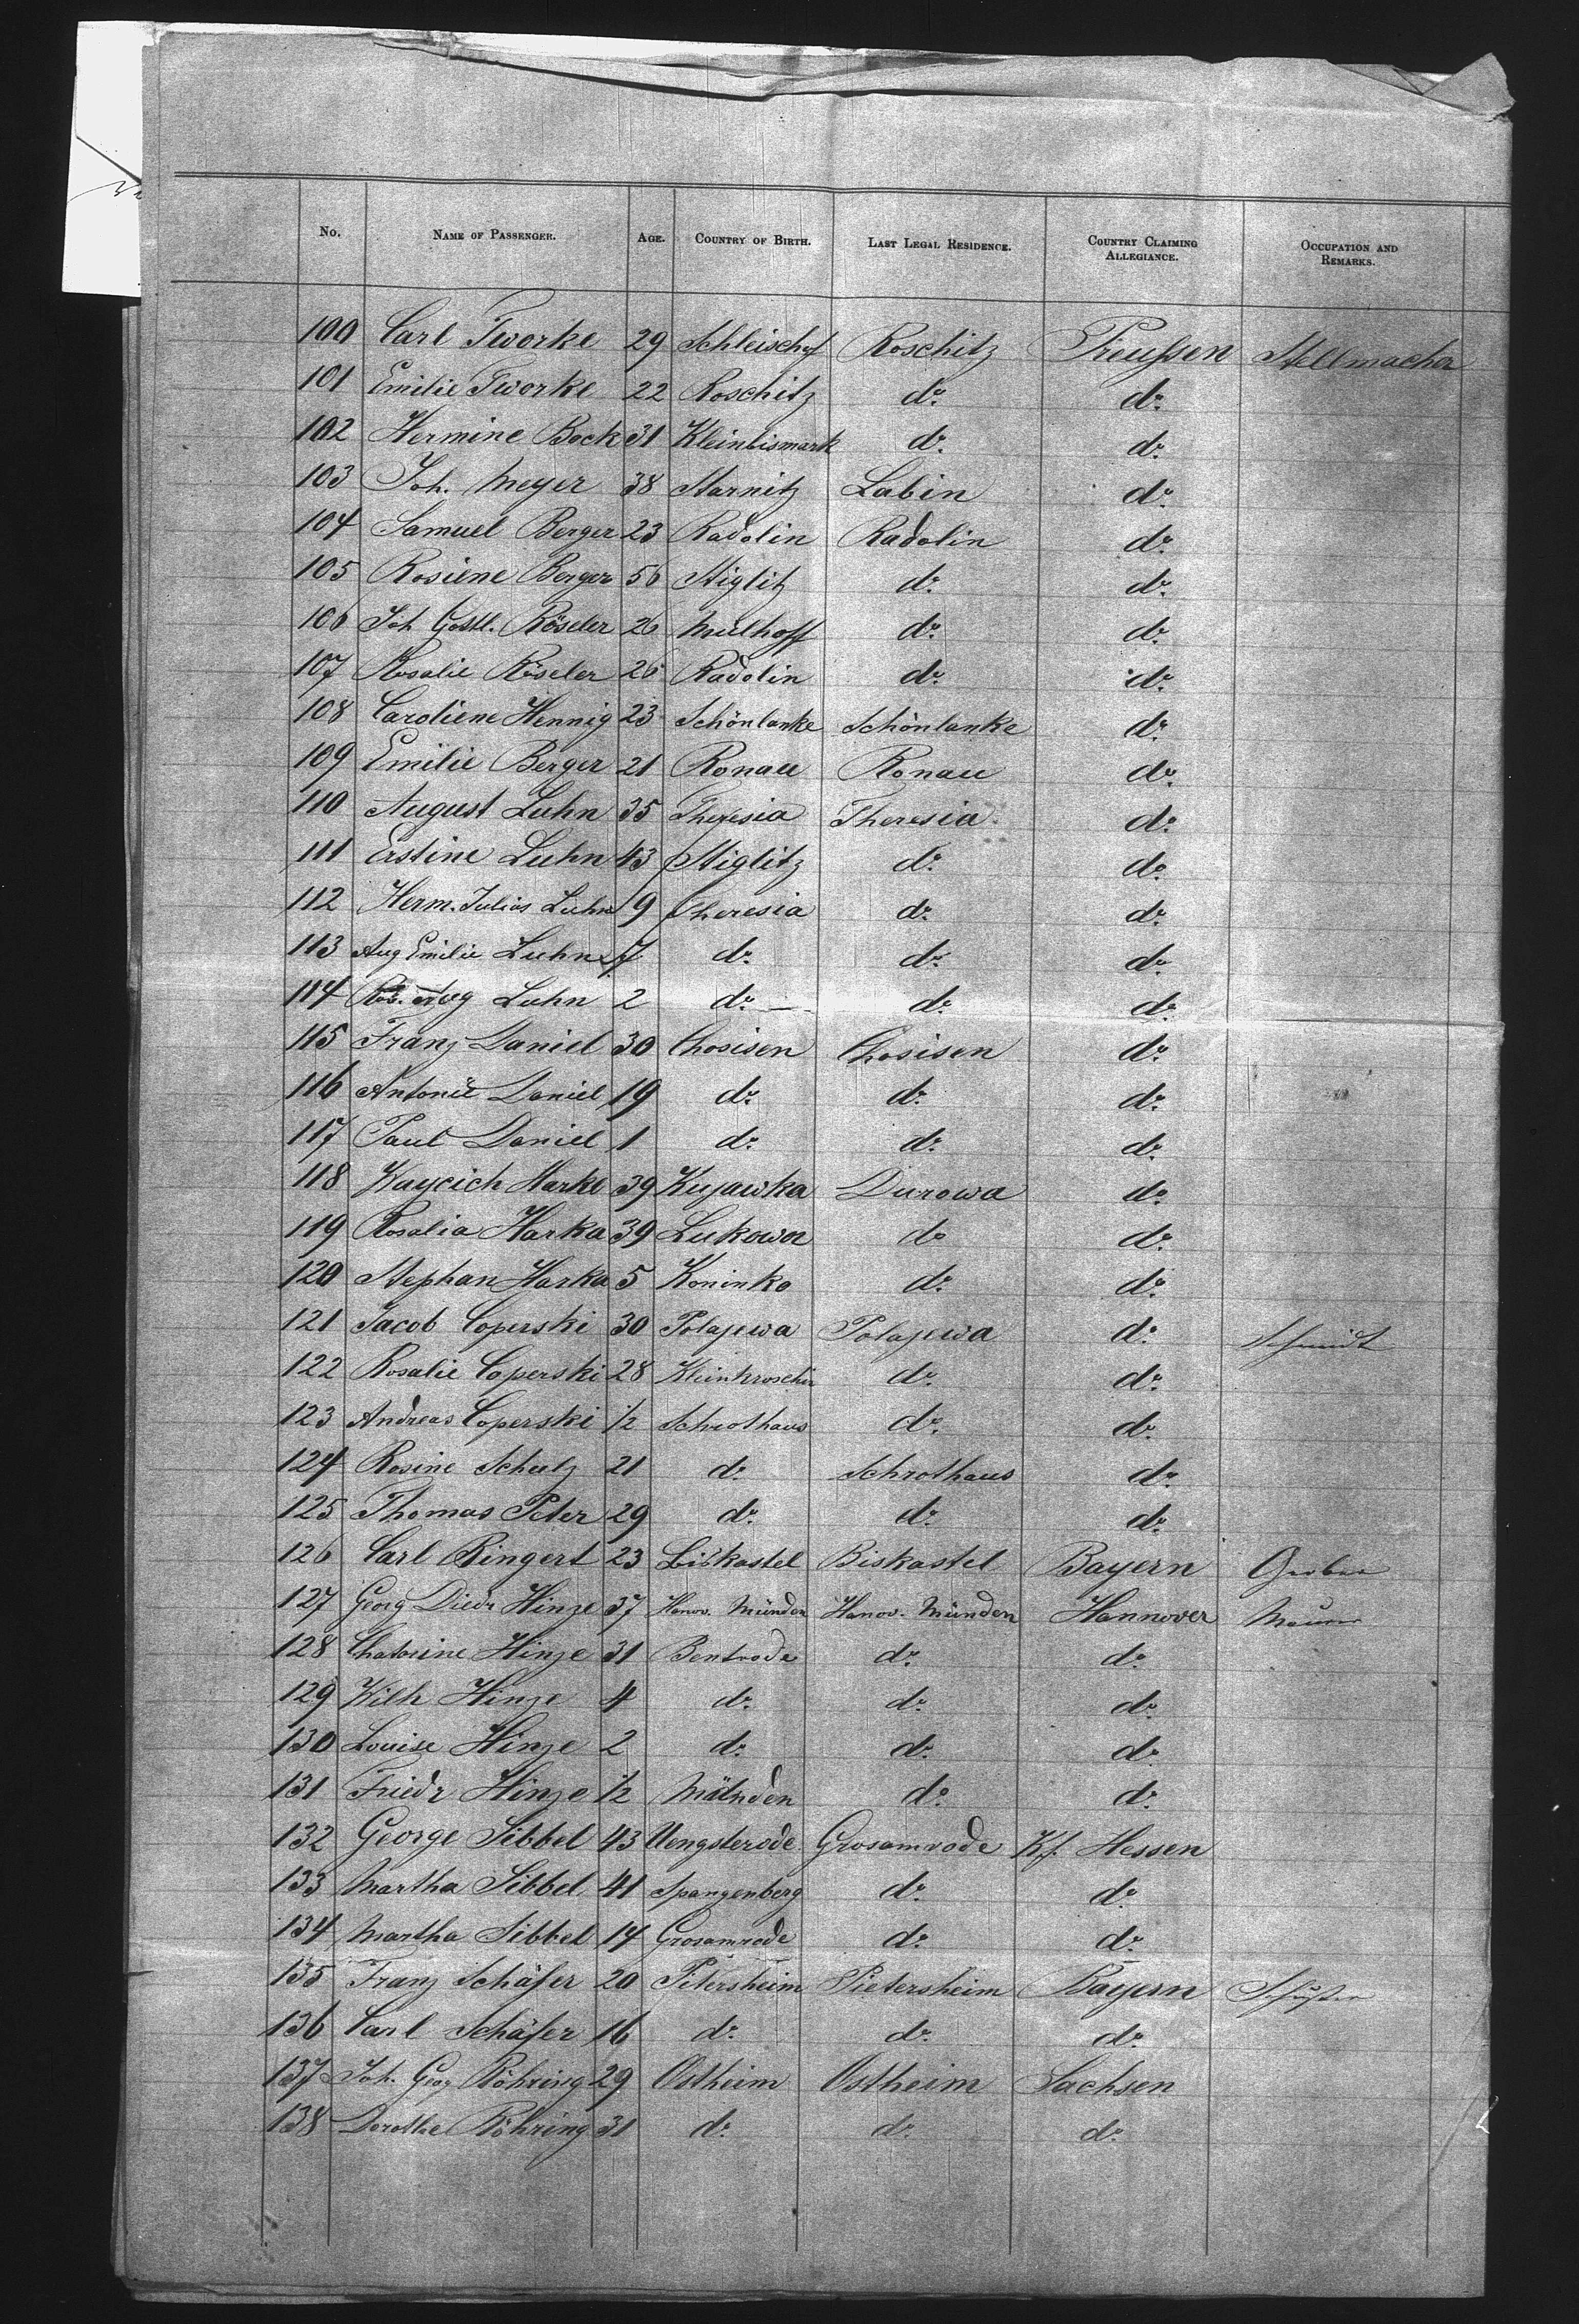 No. NAME OF PASSENGER. AGE. COUNTRY OF BIRTH. LAST LEGAL RESIDENCE. COUNTRY CLAIMING ALLEGIANCE. OCCUPATION AND REMARKS.
100 Carl Tworke 29 Roschitz Preußen Stellmacher
101 Emilie Tworke 22 Roschitz do. do.
102 Hermine Bock 31 Kleinbismark do. do.
103 Joh. Meyer 38 Starnitz Labin do.
104 Samuel Berger 23 Radolin Radolin do.
105 Rosiene Berger 56 Stiglitz do. do.
106 Joh Gottl. Röseler 26 Mielhoff do. do.
107 Rosalie Röseler 26 Radolin do. do.
108 Caroliene Hennig 23 Schönlanke Schönlanke do.
109 Emilie Berger 21 Ronau Ronau do.
110 August Luhn 35 Theresia Theresia do.
111 Erstine Luhn 43 Stiglitz do. do.
112 Herm. Julius Luhn 9 Theresia do. do.
113 Aug Emilie Luhn 7 do. do. do.
114 Rob. Aug Luhn 2 do. do. do.
115 Franz Daniel 30 Chosisen Chosisen do.
116 Antonie Daniel 19 do. do. do.
117 Paul Daniel 1 do. do. do.
118 Waycich Harke 39 Kujawka Durowa do.
119 Rosalia Harka 39 Lukowa do do.
120 Stephan Harka 5 Koninko do. do.
121 Jacob Coperski 30 Polajewa Polajewa do. Schmidt
122 Rosalie Coperski 28 do. do.
123 Andreas Coperski 1/2 Schrothaus do. do.
124 Rosine Schulz 21 do. Schrothaus do.
125 Thomas Peter 29 do. do. do.
126 Carl Ringert 23 Liskastel Biskastel Bayern
127 Georg Diedr Hinze 37 Hanov. Münden Hanov. Münden Hannover Maurer
128 Chatarine Hinze 31 Bentrode do. do.
129 Wilh Hinze 4 do. do. do.
130 Louise Hinze 2 do. do. do.
131 Friedr Hinze 1/2 Münden do. do.
132 George Sibbel 43 Uengsterode Grosamrode Kf. Hessen
133 Martha Sibbel 41 Spangenberg do. do.
134 Martha Sibbel 14 Grosamrode do. do.
135 Franz Schäfer 20 Pitersheim Pietersheim Bayern
136 Carl Schäfer 16 do. do. do.
137 Joh. Georg Röhring 29 Ostheim Ostheim Sachsen
138 Dorothe Röhring 31 do. do. do.